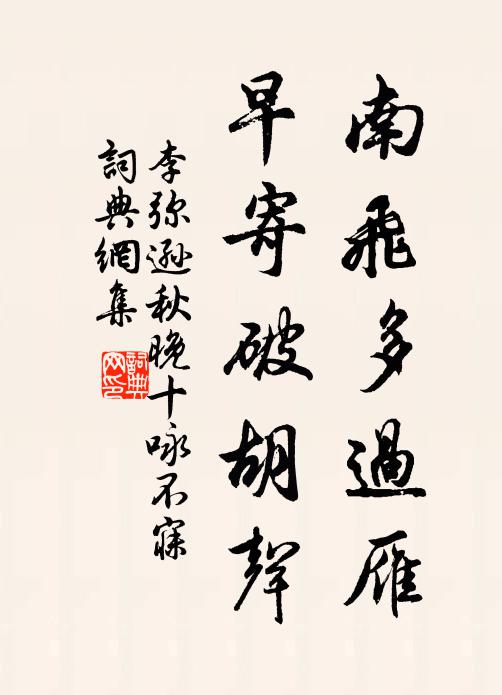 南飛多過雁
早寄破胡聲
李弥遜秋晚十咏不寐
詞典網集
詞典网印